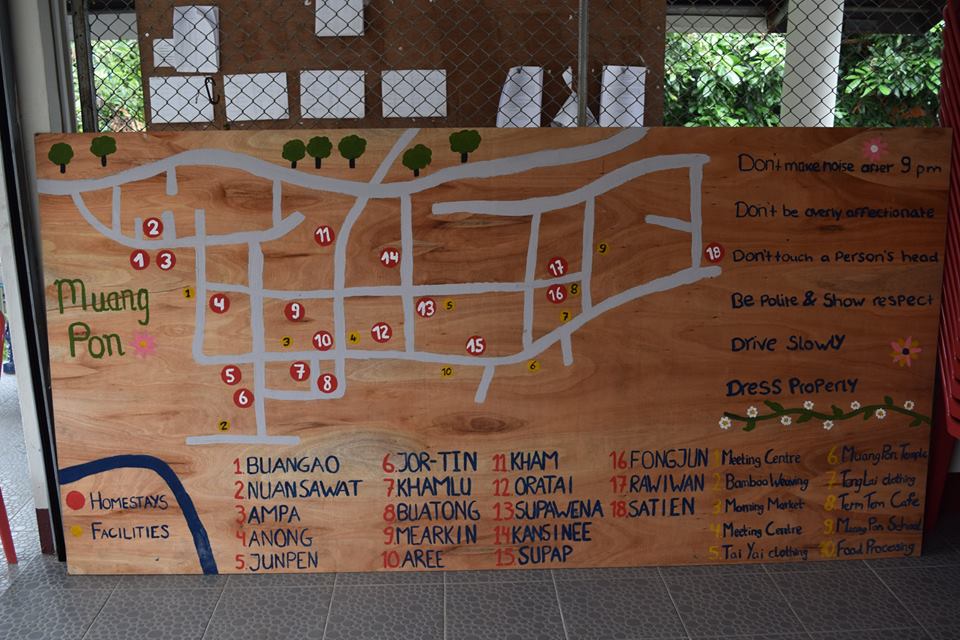 Muang
Pon
Don't make noise after 9 pm
Don't be overly affectionate
Don't touch a Person's head
Be Polite & Show respect
Drive Slowly
Dress Properly
2
1 3
11
14
17
16
18
4
9
13
10
12
15
5
7
8
6
1
3
4
5
9
8
7
6
10
2
HOMESTAYS
FACILITIES
1 BUANGAO
2 NUANSAWAT
3 AMPA
4 ANONG
5 JUNPEN
6 JOR-TIN
7 KHAMLU
8 BUATONG
9 MEARKIN
10 AREE
11 KHAM
12 ORATAI
13 SUPAWENA
14 KANSINEE
15 SUPAP
16 FONGJUN
17 RAWIWAN
18 SATIEN
1 Meeting Centre
2 Bamboo Weaving
3 Morning Market
4 Meeting Centre
5 Tai Yai clothing
6 Muang Pon Temple
7 Tong Lai clothing
8 Term Tem Cafe
9 Muang Pon School
10 Food Processing